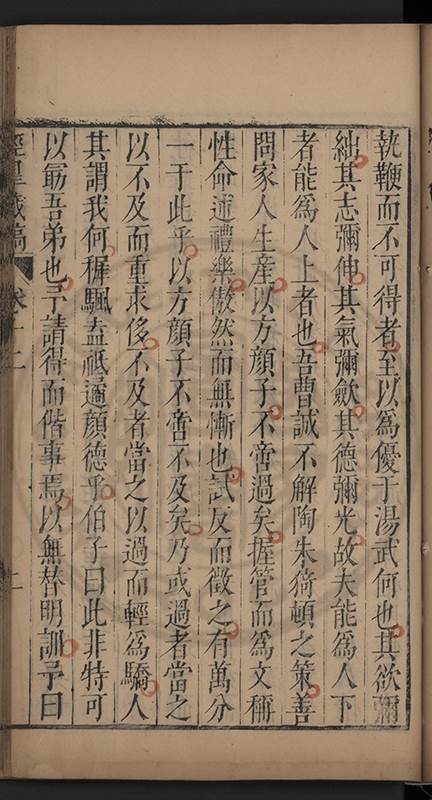 執鞭而不可得者至以爲優于湯武何也其欲彌
絀其志彌伸其氣彌歛其德彌光故夫能爲人下
者能爲人上者也吾曹誠不解陶朱猗頓之策善
問家人生産以方顔子不啻過矣握管而爲文稱
性命述禮樂傲然而無慚也試反而徵之有萬分
一于此乎以方顔子不啻不及矣乃或過者當之
以不及而重求侈不及者當之以過而輕爲驕人
其謂我何穉颿盍祗遹顔德乎伯子曰此非特可
以勗吾弟也予請得而偕事焉以無替明訓予曰
涇臯藏稿 卷十二 二